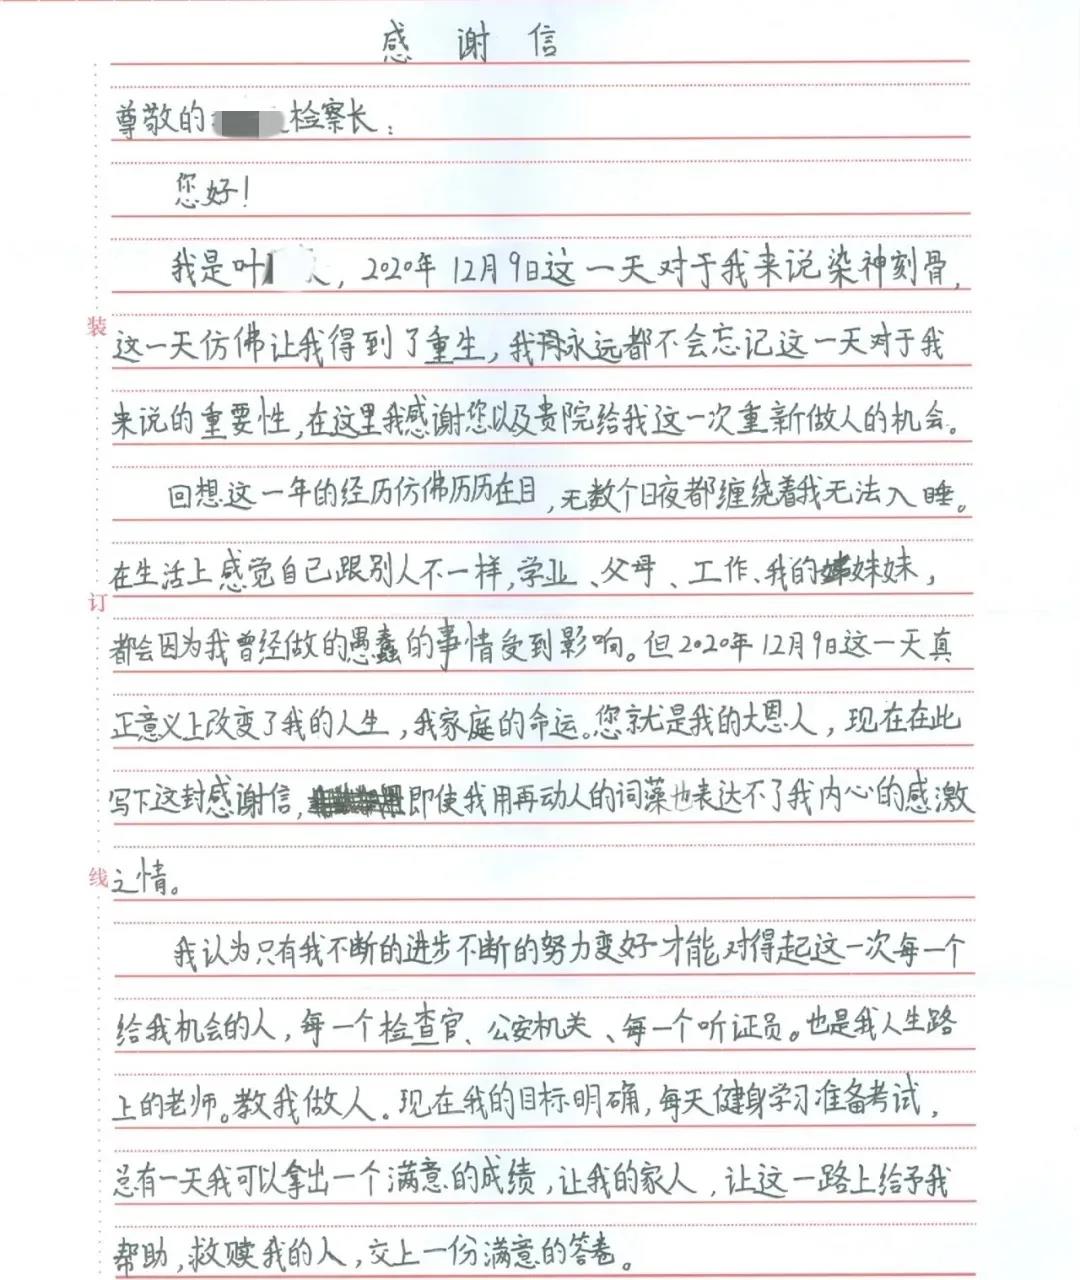 感谢信
尊敬的 检察长：
您好！
我是叶 ，2020年12月9日这一天对于我来说染神刻骨，
这一天仿佛让我得到了重生，我永远都不会忘记这一天对于我
来说的重要性，在这里我感谢您以及贵院给我这一次重新做人的机会。
回想这一年的经历仿佛历历在目，无数个日夜都缠绕着我无法入睡。
在生活上感觉自己跟别人不一样，学业、父母、工作、我的妹妹，
都会因为我曾经做的愚蠢的事情受到影响。但2020年12月9日这一天真
正意义上改变了我的人生，我家庭的命运。您就是我的大恩人，现在在此
写下这封感谢信，即使我用再动人的词藻也表达不了我内心的感激
之情。
我认为只有我不断的进步不断的努力变好才能对得起这一次每一个
给我机会的人，每一个检查官、公安机关、每一个听证员。也是我人生路
上的老师。教我做人。现在我的目标明确，每天健身学习准备考试，
总有一天我可以拿出一个满意的成绩，让我的家人，让这一路上给予我
帮助，救赎我的人，交上一份满意的答卷。
装
订
线